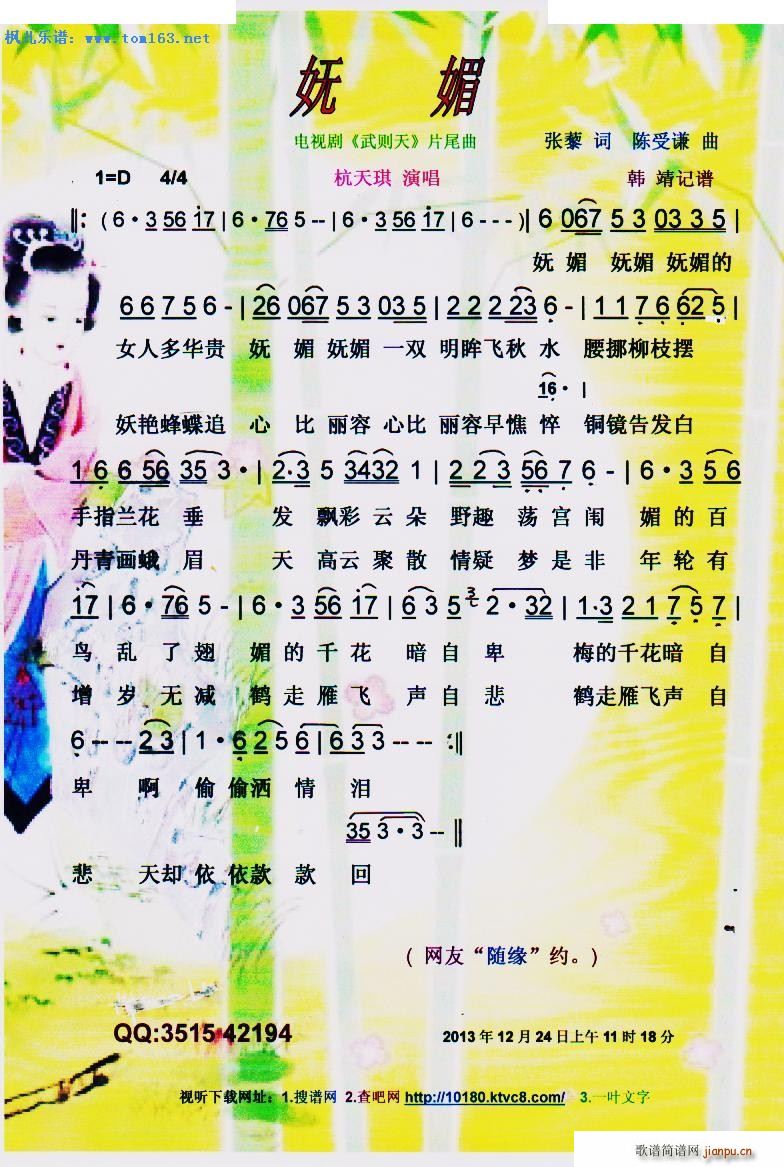 枫儿乐谱：www.tom163.net
妩 媚
电视剧《武则天》片尾曲 张藜 词 陈受谦 曲
1=D 4/4 杭天琪 演唱 韩 靖记谱
‖: （6·3 56 i7 | 6·76 5 -- | 6·3 56 i7 | 6 - - -）| 6 067 5 3 03 3 5 |
妩 媚 妩媚 妩媚的
6 6 7 5 6 - | 26 067 5 3 03 5 | 2 2 2 23 6 - | 1 1 7 6 62 5 |
女人多华贵 妩 媚 妩媚 一双 明眸飞秋 水 腰挪柳枝摆
16· |
妖艳蜂蝶追 心 比 丽容 心比 丽容早憔 悴 铜镜告发白
1 6 6 56 35 3· | 2·3 5 3432 1 | 2 2 3 56 7 6 - | 6·3 5 6
手指兰花 垂 发 飘彩 云 朵 野趣 荡宫闱 媚 的 百
丹青画蛾 眉 天 高云 聚散 情疑 梦 是 非 年 轮 有
i7 | 6·76 5 - | 6·3 56 i7 | 6 3 5 2·32 | 1·3 2 1 7 5 7 |
鸟 乱 了 翅 媚 的 千 花 暗 自 卑 梅的千花暗 自
增 岁 无 减 鹤 走 雁 飞 声 自 悲 鹤走雁飞声 自
6 -- -- 2 3 | 1·6 2 5 6 | 6 3 3 -- -- :‖
卑 啊 偷 偷洒 情 泪
35 3·3 -- ‖
悲 天却 依 依款 款 回
( 网友“随缘”约。)
QQ:3515 42194 2013 年 12 月 24 日上午 11 时 18 分
视听下载网址：1.搜谱网 2.查吧网 http://10180.ktvc8.com/ 3.一叶文字
歌谱简谱网
jianpu.cn